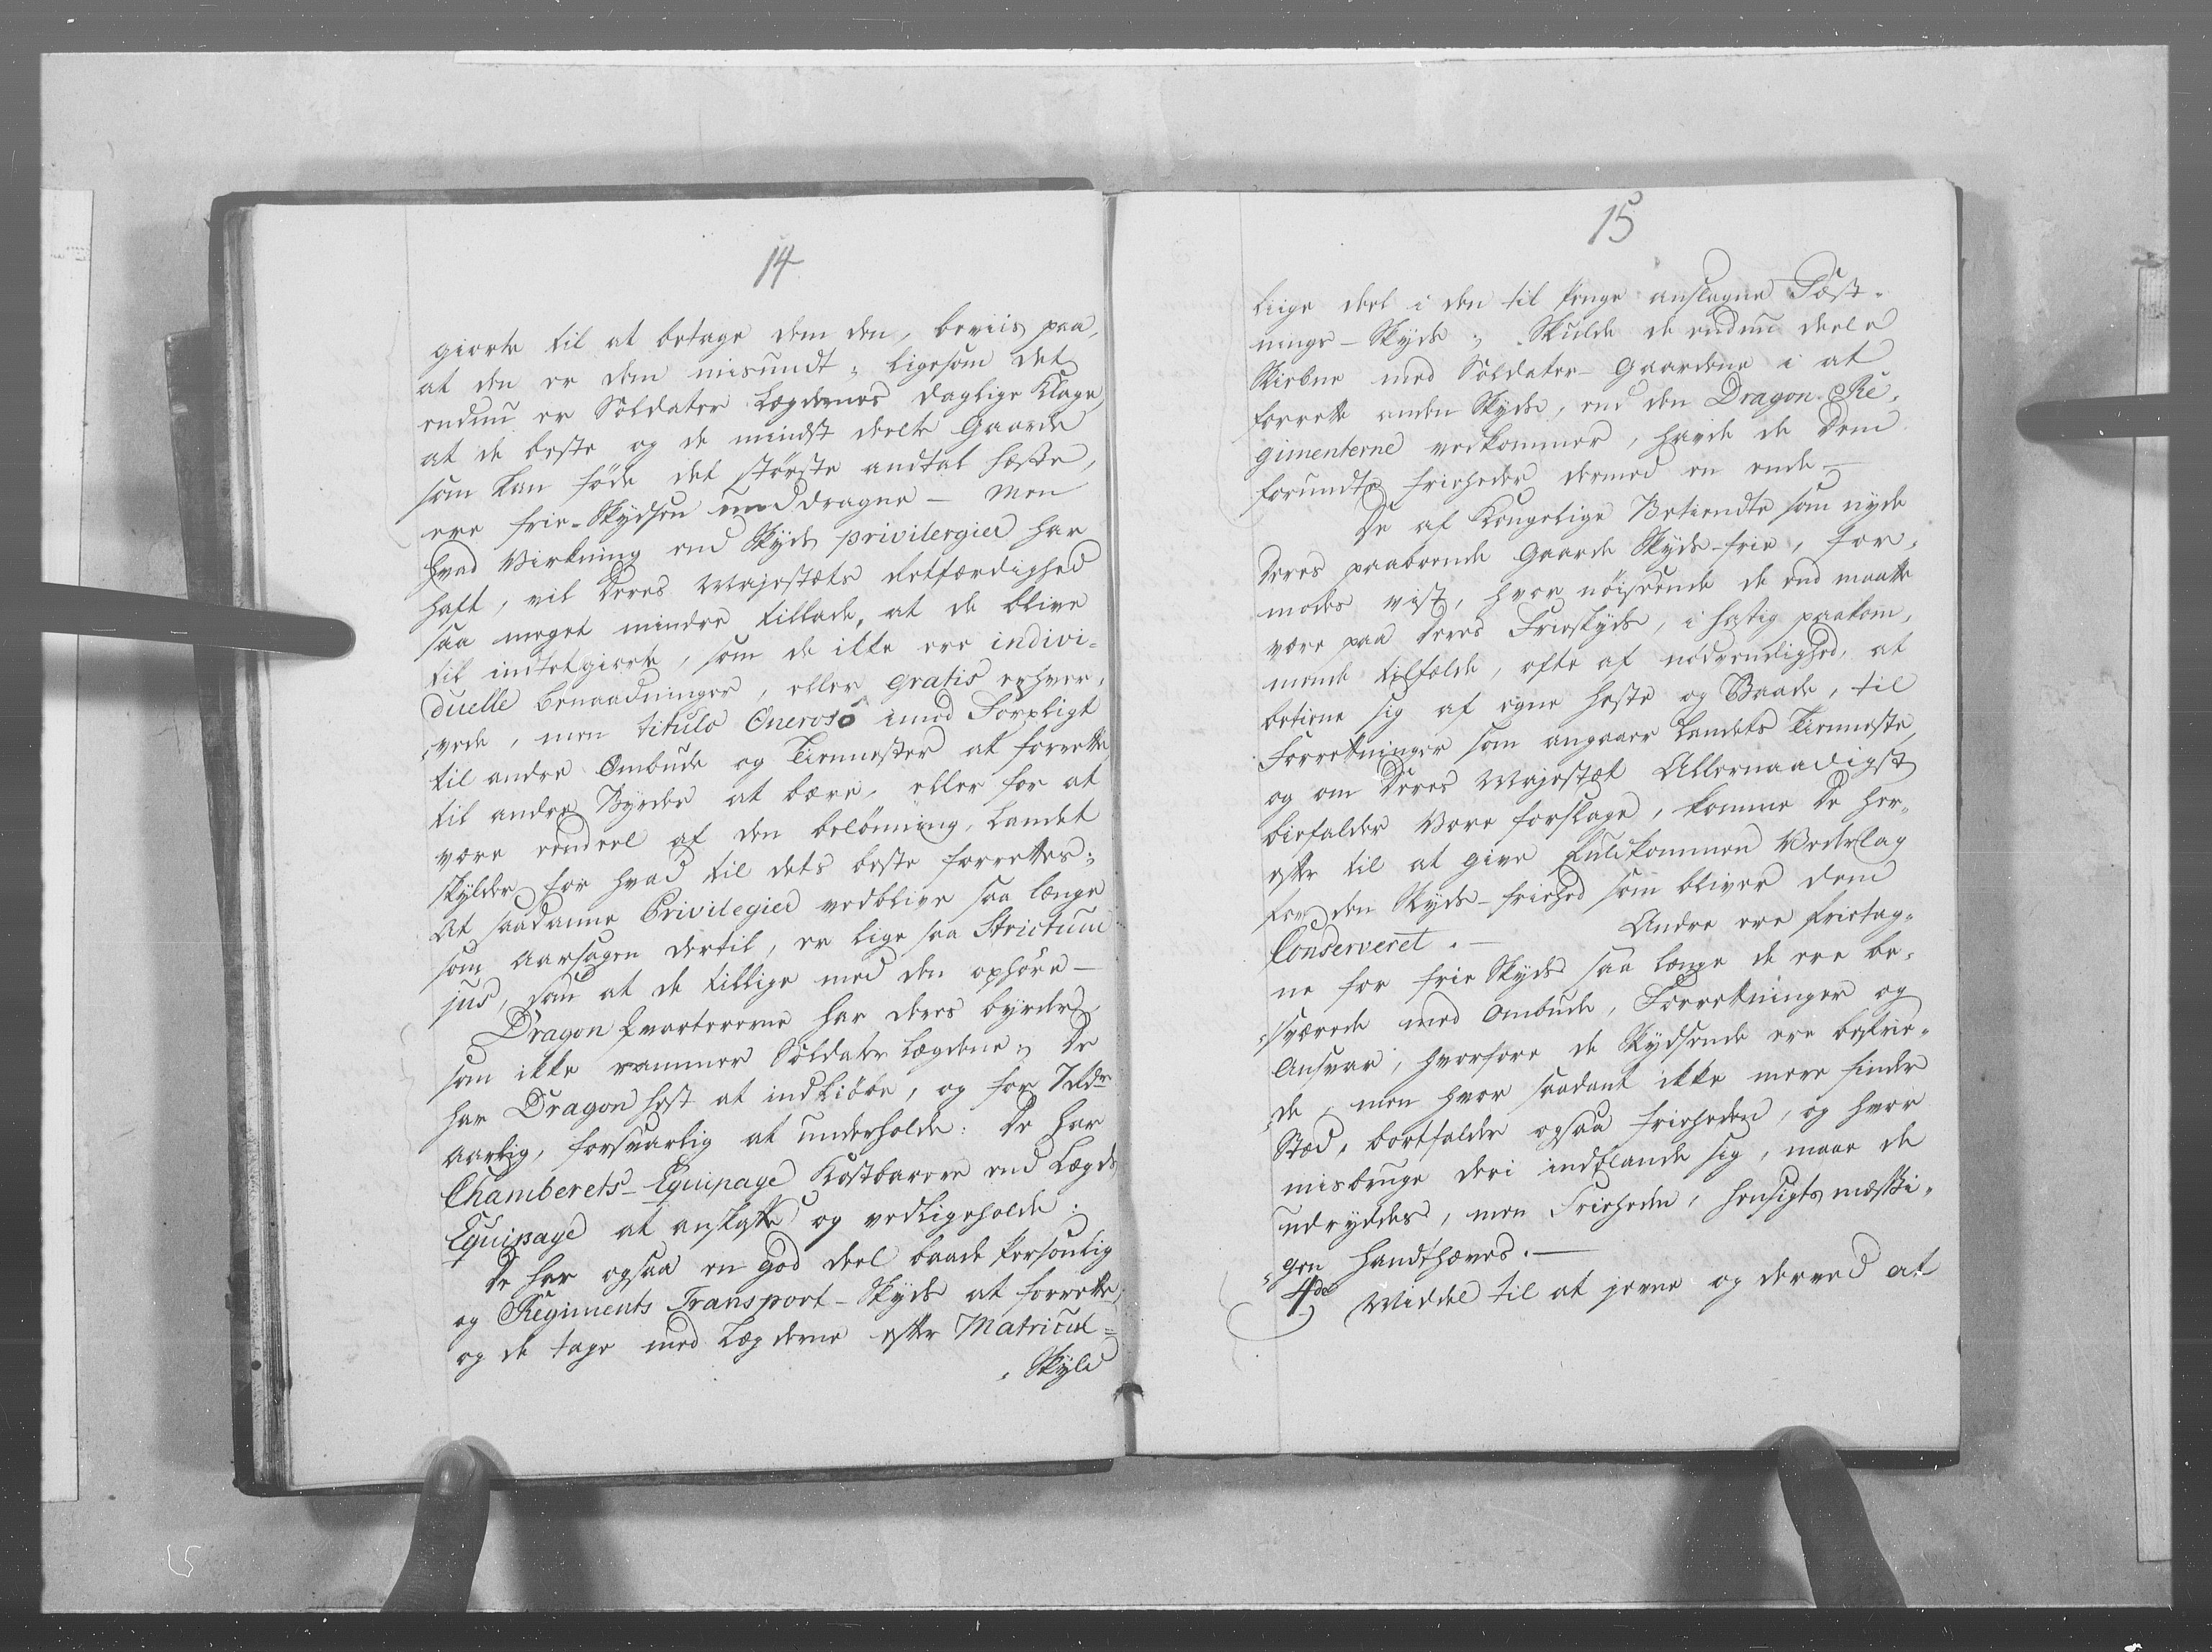 14
giorte til at betage dem den, beviis paa,
at den er dem misundt; ligesom det
endnu er Soldater Lægdernes daglige Klage,
at de beste og de mindst deelte Gaarde
som kan föde det störste andtal Heste,
ere frie-Skydsen unddragne - Men
hvad Virkning end Skyds privilergier har
haft, vil Deres Majestæts Retfærdighed
saa meget mindre tillade, at de blive
til intetgiorte, som de ikke ere indivi-
duelle benaadninger, eller gratis erhver-
vede, men titulo Oneroso imod Forpligt
til andre Ombude og Tienester at forrette,
til andre Byrder at bære, eller for at
være endeel af den belönning, Landet
skylder for hvad til dets beste forrettes;
At saadanne Privilegier vedblive saa længe
som Aarsagen dertil, er lige saa Strictum
jus, som at de tillige med den ophöre -
Dragon Qvartererne har deres byrder
som ikke rammer Soldater Lægdene; De
har Dragon Hest at indkiöbe, og for 7 Rdr
Aarlig, forsvarlig at underholde: De har
Chamberets-Equipage kostbarere end Lægds
Equipage at anskaffe og vedligeholde:
De har ogsaa en god deel baade Personlig
og Regiments Transport-Skyds at forrette,
og de tage med Lægderne efter Matricul=
Skyld
15
liige deel i den til penge anslagne Fæst-
nings-Skyds; Skulde de endnu deele
Skiebne med Soldater-Gaardene i at
forrette anden Skyds, end den Dragon-Re-
gimenterne vedkommer, havde de Dem
forundte frieheder dermed en ende. -
De af Kongelige Betiendte som nyde
Deres paaboende Gaarde Skyds-frie, for-
modes vist, hvor nöiseende de end maatte
være paa Deres Frieskyds, i hastig paakom-
mende tilfælde, ofte af nödvendighed, at
betiene sig af egne Heste og Baade, til
Forretninger som angaaer Landets Tienneste,
og om Deres Majestæt Allernaadigst
biefalder Vore forslage, komme De her-
efter til at give fuldkommen Vederlag
for den Skyds-friehed som bliver dem
Conserveret. - Andre ere frietag-
ne for frie Skyds saa længe de ere be-
sværede med Ombude, Forretninger og
Ansvar, hvorfore de Skydsende ere befrie-
de, men hvor saadant ikke mere finder
Stæd, bortfalder ogsaa frieheden, og hvor
misbruge deri indblande sig, maae de
udryddes, men Frieheden, hensigtsmæssi-
gen Handthæves. -
4de Middel til at jevne og derved at